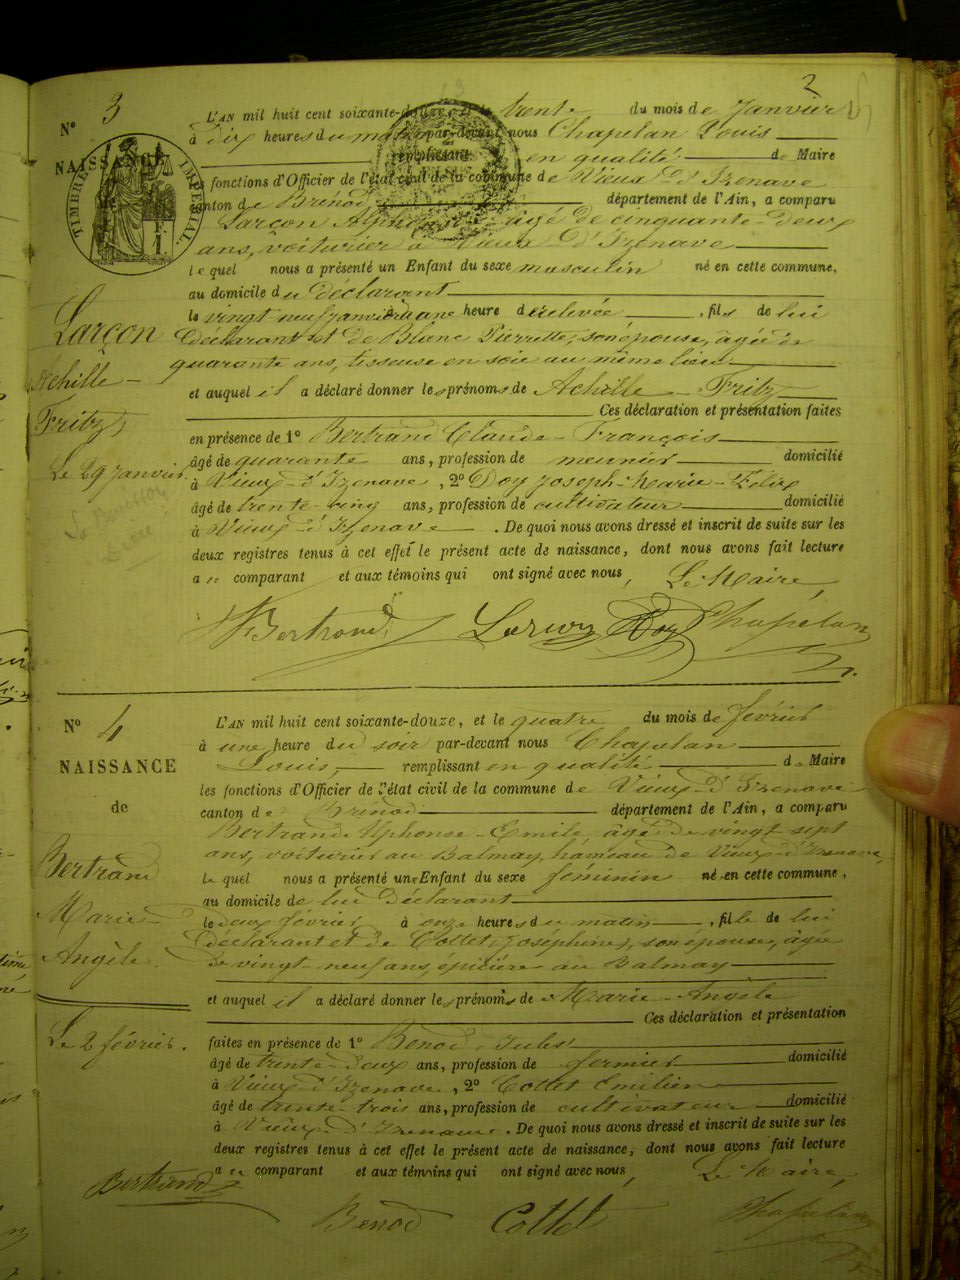 2
N° 3
L'AN mil huit cent soixante-douze, et le trente du mois de Janvier
à dix heures du matin par-devant nous Chapelan Louis
NAISSANCE
TIMBRE IMPERIAL
remplissant en qualité de Maire
les fonctions d'Officier de l'état civil de la commune de Vieux-d'Izenave
canton de Brénod, département de l'Ain, a comparu
Larçon Alphonse âgé de cinquante-deux
ans, voiturier à Vieux-d'Izenave
lequel nous a présenté un Enfant du sexe masculin né en cette commune,
au domicile du déclarant
le vingt neuf janvier à une heure de relevée, fils de lui
Larçon
déclarant et de Blanc Pierrette, son épouse, âgée de
quarante ans, tisseuse en soie au même lieu
Achille-
et auquel il a déclaré donner les prénoms de Achille Fritz
Fritz
Ces déclaration et présentation faites
en présence de 1° Bertrand Claude-François
âgé de quarante ans, profession de meunier domicilié
Le 29 janvier.
à Vieux-d'Izenave, 2° Doy Joseph-Marie-Félix
âgé de trente-cinq ans, profession de cultivateur domicilié
à Vieux-d'Izenave. De quoi nous avons dressé et inscrit de suite sur les
deux registres tenus à cet effet le présent acte de naissance, dont nous avons fait lecture
au comparant et aux témoins qui ont signé avec nous, Le Maire,
Bertrand Larçon Doy Chapelan
N° 4
L'AN mil huit cent soixante-douze, et le quatre du mois de février
à une heure du soir par-devant nous Chapelan
NAISSANCE
Louis, remplissant en qualité de Maire
les fonctions d'Officier de l'état civil de la commune de Vieux-d'Izenave
de
canton de Brénod département de l'Ain, a comparu
Bertrand Alphonse-Emile, âgé de vingt sept
ans, voiturier au Balmay, hameau de Vieux-d'Izenave,
Bertrand
lequel nous a présenté un Enfant du sexe féminin né en cette commune,
au domicile de lui déclarant
Marie-
le deux février à onze heures du matin, fille de lui
déclarant et de Collet Joséphine, son épouse, âgée
Angèle.
de vingt-neuf ans, épicière au Balmay
et auquel il a déclaré donner les prénoms de Marie-Angèle
Ces déclaration et présentation
Le 2 février.
faites en présence de 1° Benod Jules
âgé de trente-deux ans, profession de fermier domicilié
à Vieux-d'Izenave, 2° Collet Emilien
âgé de trente-trois ans, profession de cultivateur domicilié
à Vieux-d'Izenave. De quoi nous avons dressé et inscrit de suite sur les
deux registres tenus à cet effet le présent acte de naissance, dont nous avons fait lecture
au comparant et aux témoins qui ont signé avec nous, Le Maire,
Bertrand
Benod Collet Chapelan